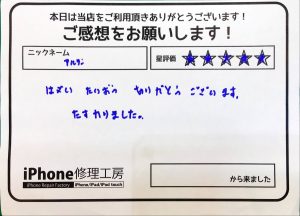 本日は当店をご利用頂きありがとうございます!
ご感想をお願いします!
ニックネーム
星評価 ★★★★★
はやい たいおう ありがとう ございます。
たすかりました。
iPhone修理工房
iPhone Repair Factory iPhone/iPad/iPod touch
から来ました